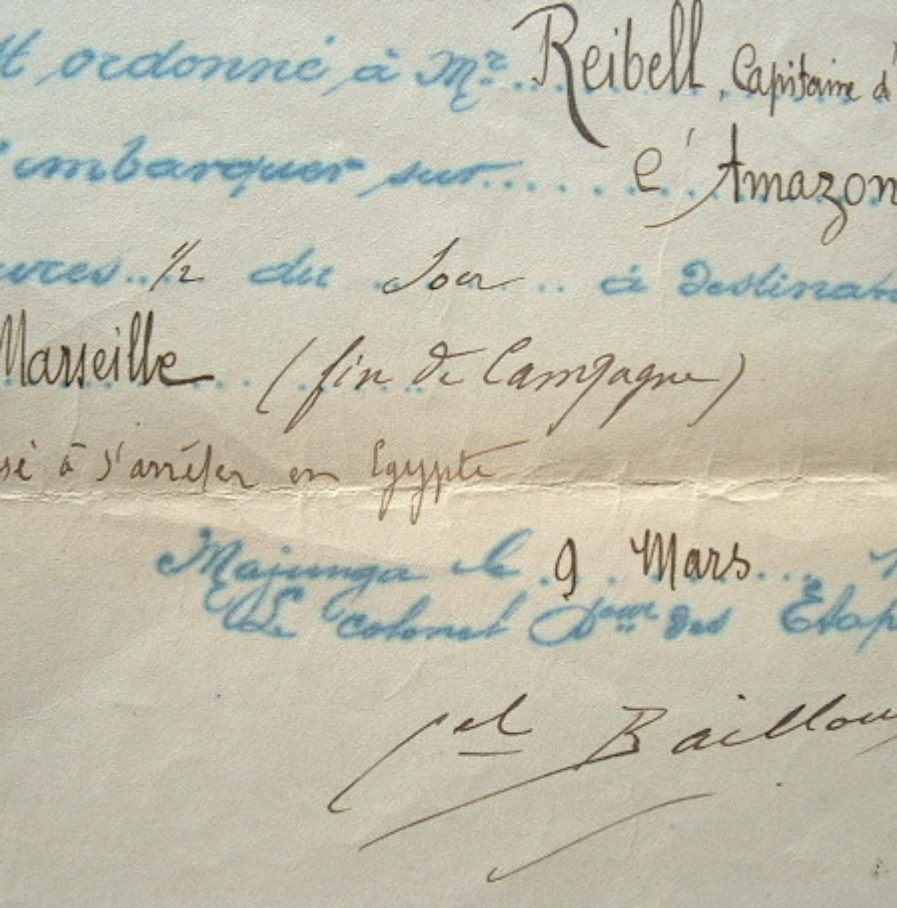 ordonné à Mr... Reibell, Capitaine d'
embarquer sur...... l'Amazon
ures.. 1/2 du Soir .. à Destinat
Marseille... (fin de Campagne)
sé à s'arrêter en Egypte
Majunga le 9 Mars....
Le colonel Dteur des Etap
Cel Baillou